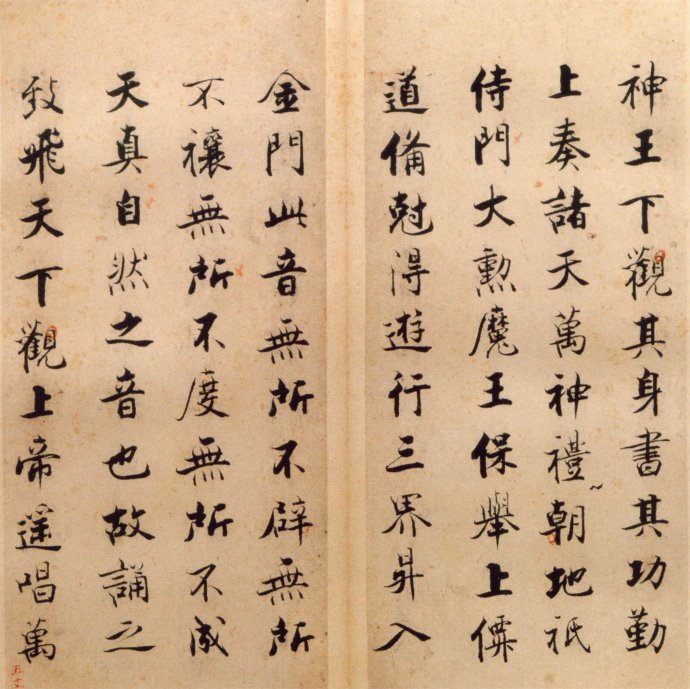 神王下觀其身書其功勤
上奏諸天萬神禮朝地祇
侍門大勳魔王保舉上僊
道備剋得遊行三界昇入
金門此音無所不辟無所
不禳無所不度無所不成
天真自然之音也故誦之
致飛天下觀上帝遥唱萬